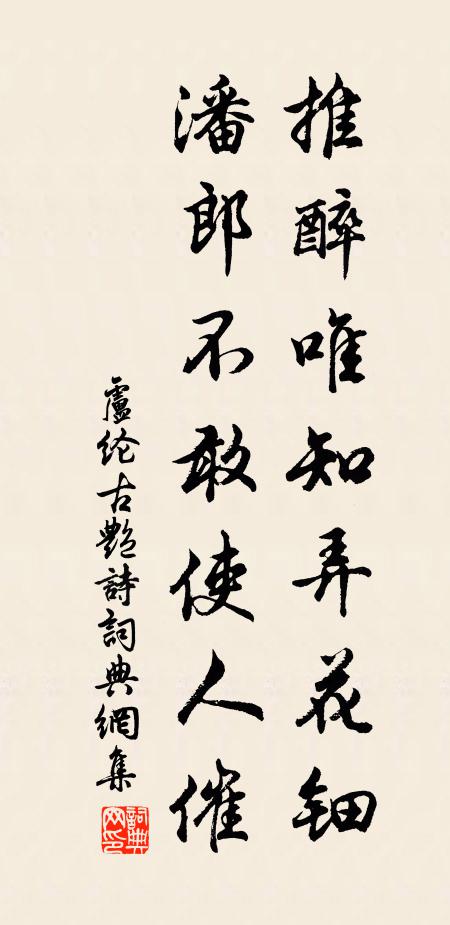 推醉唯知弄花钿
潘郎不敢使人催
盧纶古艷詩詞典網集
詞典网印